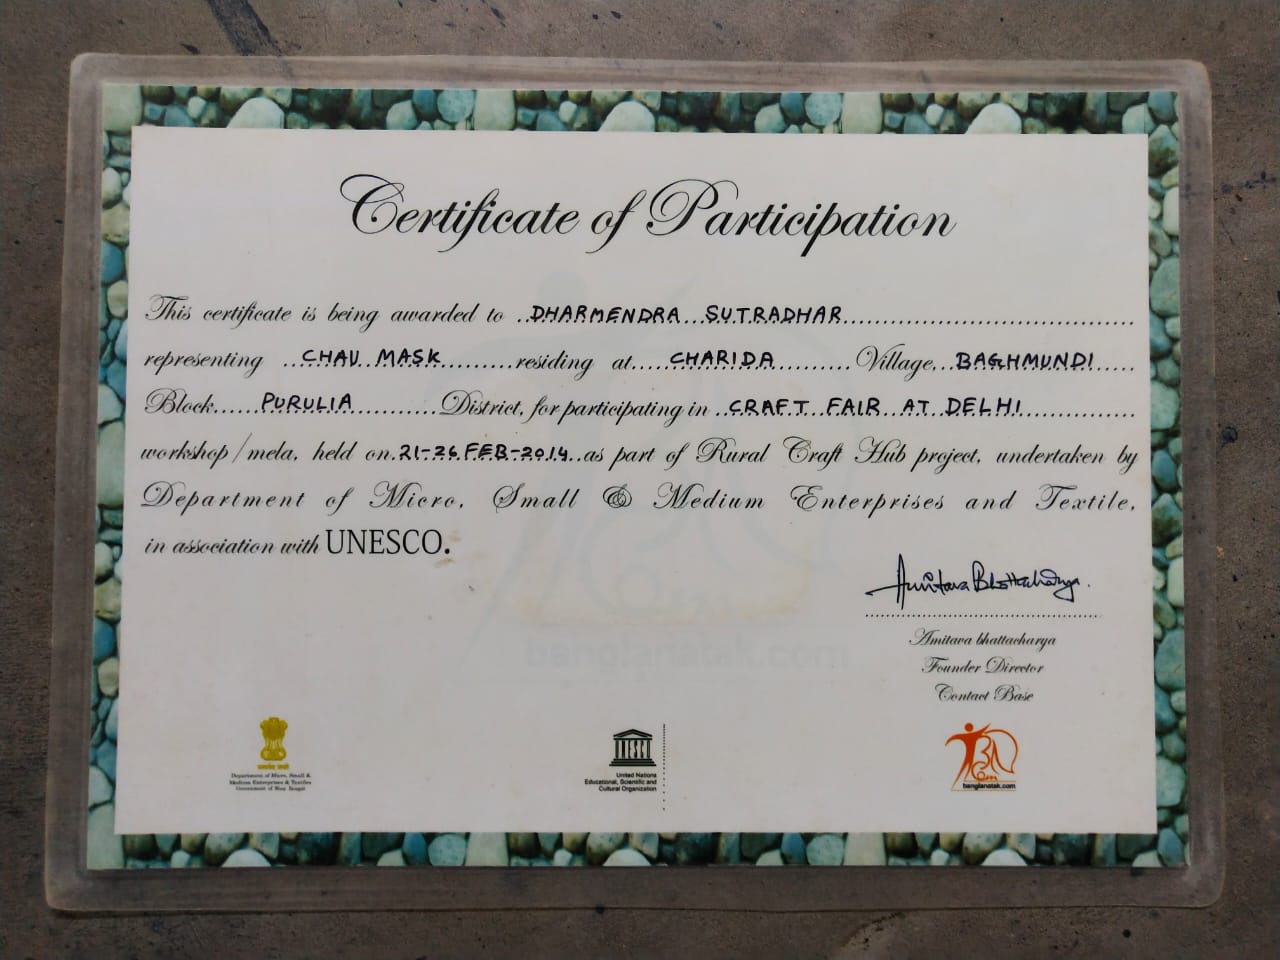 Certificate of Participation
This certificate is being awarded to ..DHARMENDRA...SUTRADHAR..........
representing ...CHAU MASK..........residing at.....CHARIDA..........Village...BAGHMUNDI.....
Block......PURULIA...........District, for participating in ..CRAFT FAIR AT DELHI..........
workshop/mela, held on.21-26 FEB-2014..as part of Rural Craft Hub project, undertaken by
Department of Micro, Small & Medium Enterprises and Textile,
in association with UNESCO.
Amitava Bhattacharya.
Amitava bhattacharya
Founder Director
Contact Base
Department of Micro, Small &
Medium Enterprises & Textiles
Government of West Bengal
United Nations
Educational, Scientific and
Cultural Organization
banglanatak.com
banglanatak.com